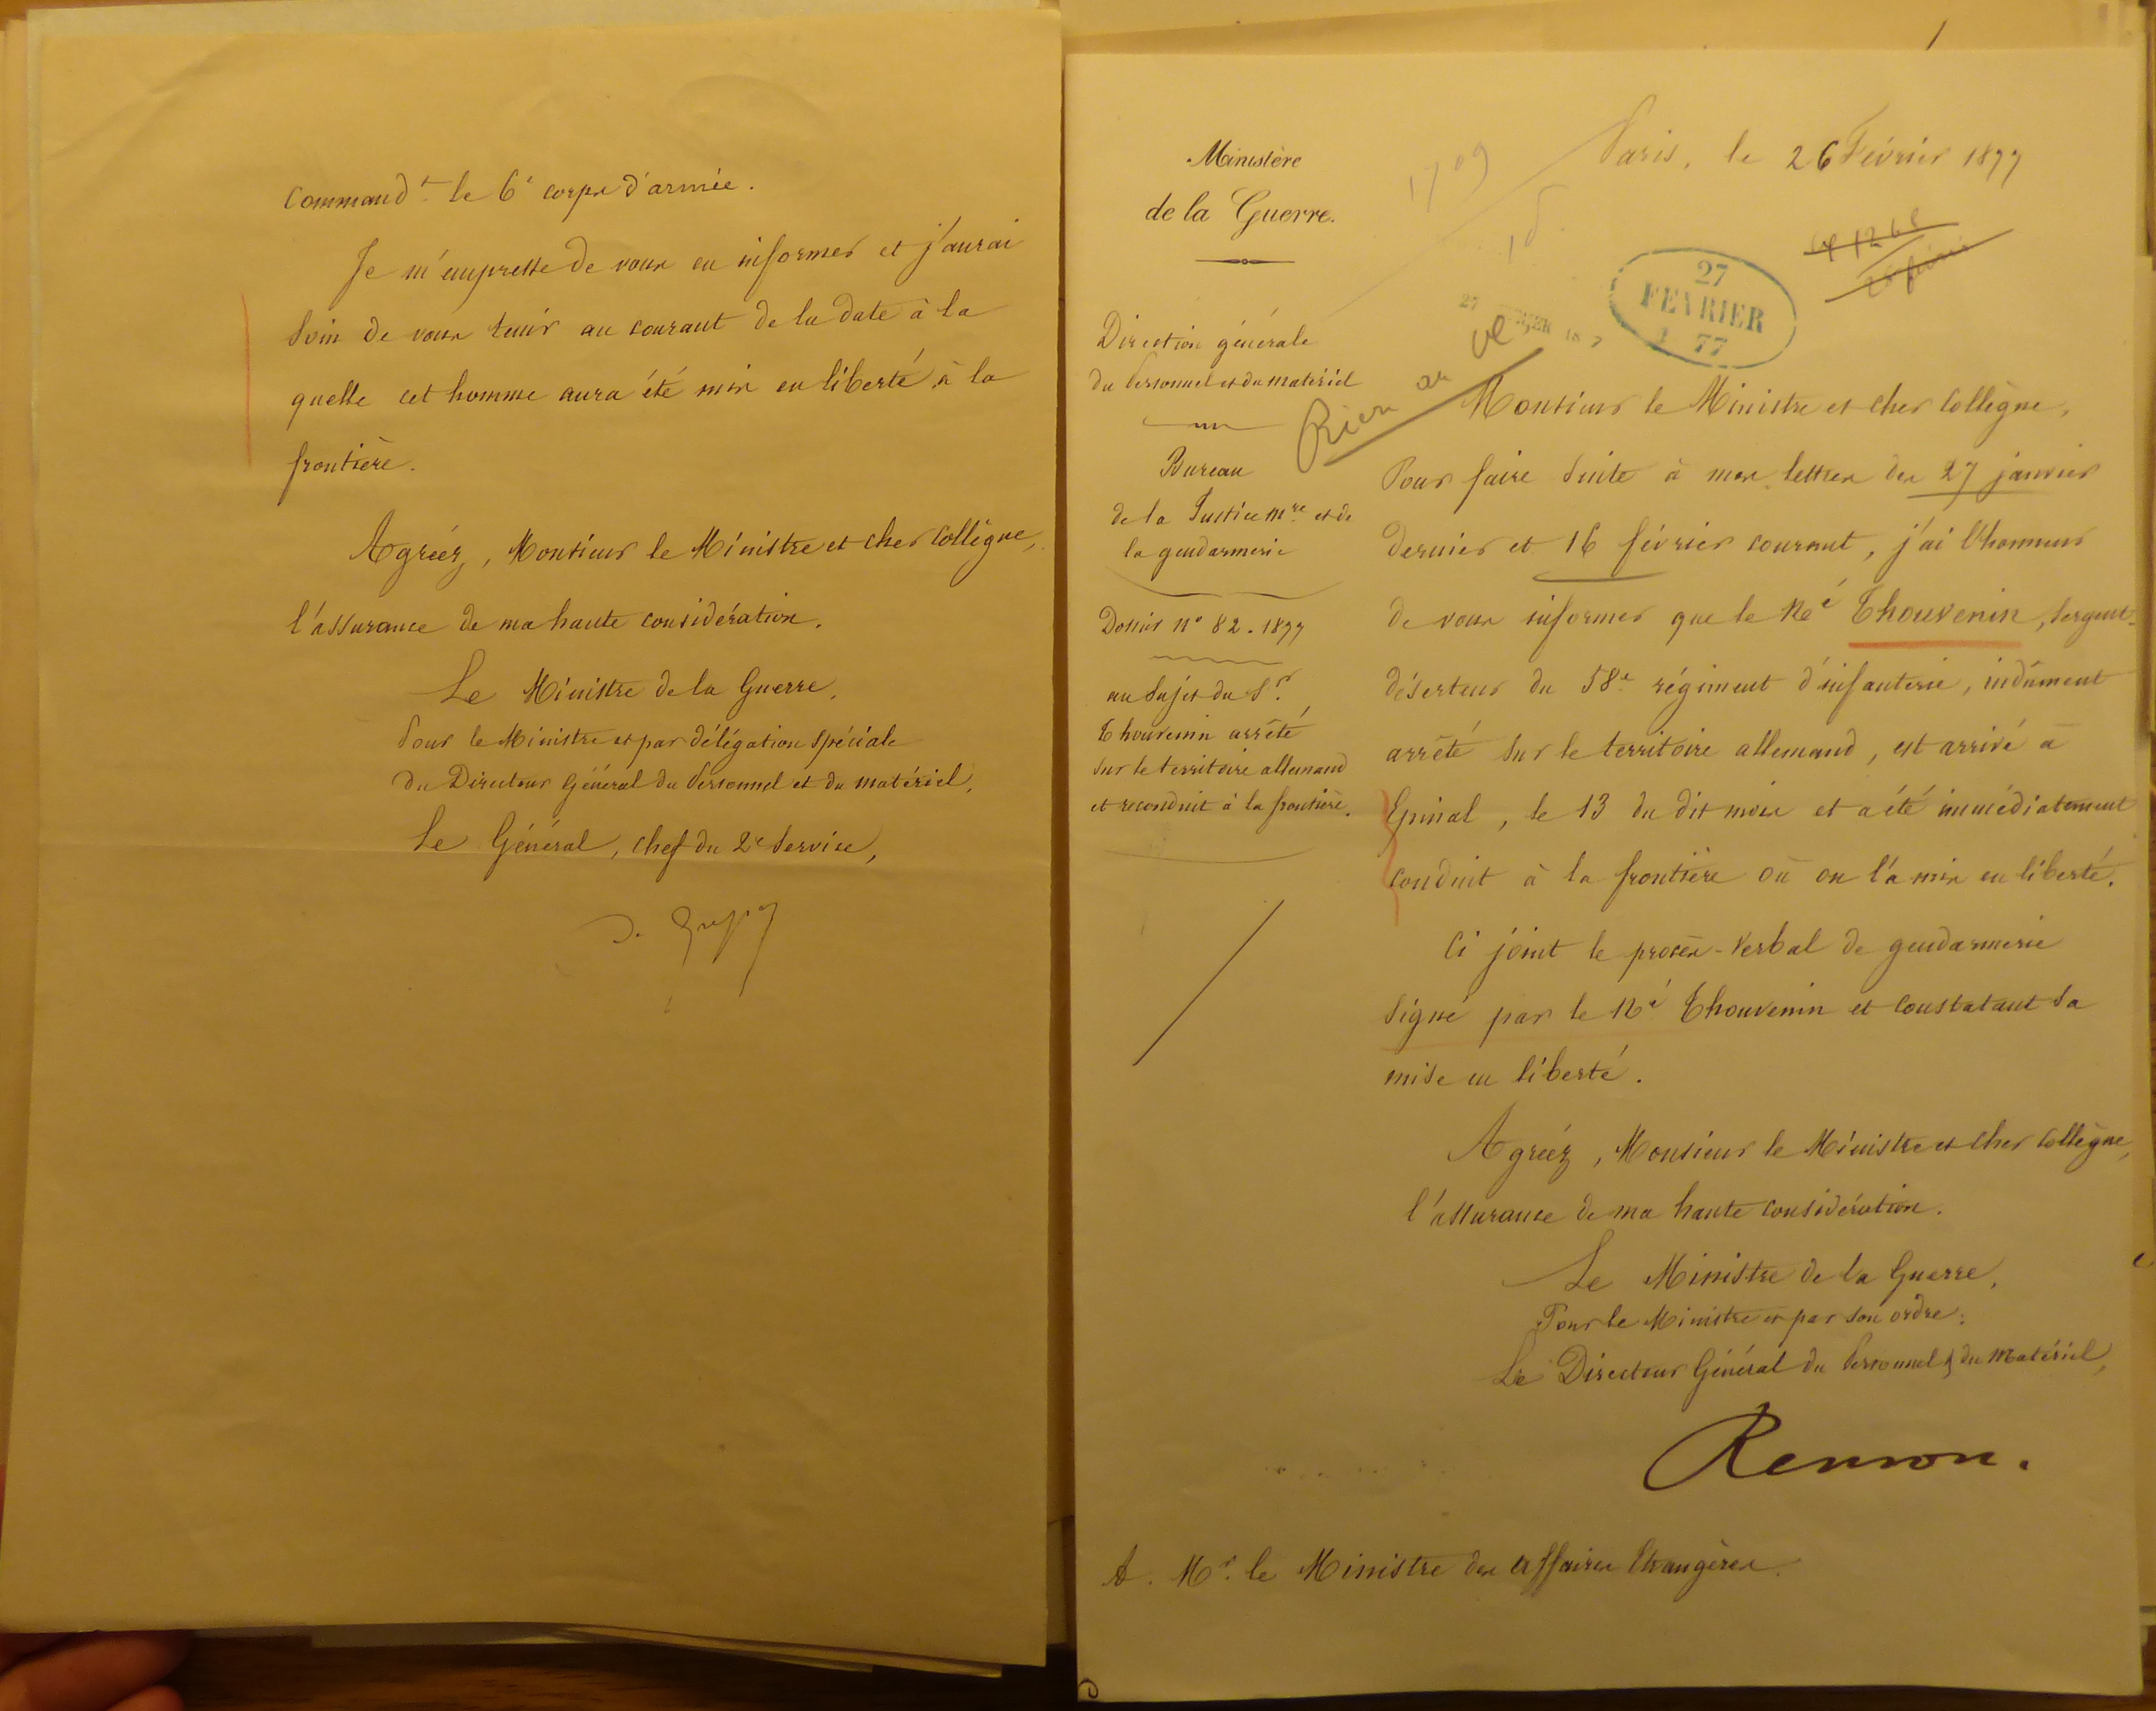 Command.t le 6e corps d'armée.
Je m'empresse de vous en informer et j'aurai
soin de vous tenir au courant de la date à la
quelle cet homme aura été mis en liberté à la
frontière.
Agréez, Monsieur le Ministre et cher Collègue,
l'assurance de ma haute considération.
Le Ministre de la Guerre,
Pour le Ministre et par délégation spéciale
du Directeur Général du Personnel et du matériel,
Le Général, chef du 2e Service,
1
Ministère
de la Guerre.
Direction générale
du Personnel et du matériel
Bureau
de la Justice mre et de
la gendarmerie
Dossier no 82. 1877
au sujet du Sr.
Thouvenin arrêté
sur le territoire allemand
et reconduit à la frontière.
Paris, le 26 Février 1877
1709
27
FEVRIER
1 77
Rien au
Monsieur le Ministre et cher Collègue,
Pour faire suite à mes lettres des 27 janvier
dernier et 16 février courant, j'ai l'honneur
de vous informer que le né Thouvenin, sergent-
déserteur du 58e régiment d'infanterie, indûment
arrêté sur le territoire allemand, est arrivé à
Epinal, le 13 du dit mois et a été immédiatement
conduit à la frontière où on l'a mis en liberté.
Ci joint le procès-verbal de gendarmerie
signé par le né Thouvenin et constatant sa
mise en liberté.
Agréez, Monsieur le Ministre et cher Collègue,
l'assurance de ma haute considération.
Le Ministre de la Guerre,
Pour le Ministre et par son ordre:
Le Directeur Général du Personnel & du matériel,
Renson.
A. Mr. le Ministre des Affaires Etrangères.